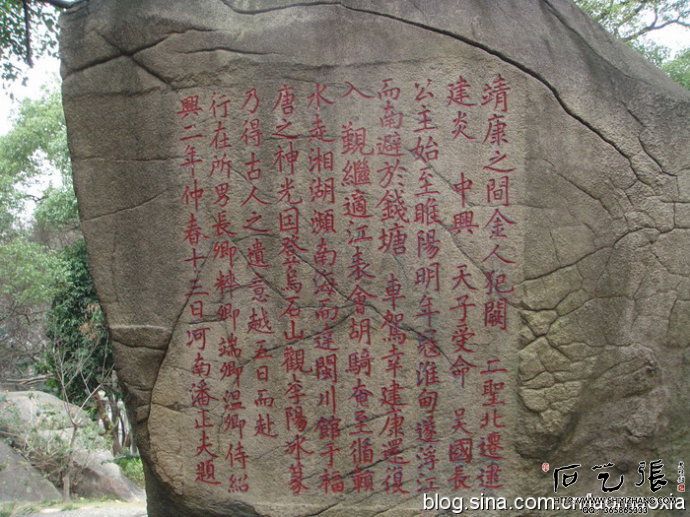 靖康之間金人犯闕 二聖北遷逮
建炎 中興 天子受命 吳國長
公主始至睢陽明年寇淮甸遂浮江
而南避於錢塘 車駕幸建康還復
入 覲繼適江表會胡騎奄至循贛
水走湘湖瀕南海而達閩川館于福
唐之神光囙登烏石山觀李陽冰篆
乃得古人之遺意越五日而赴
行在所男長卿粹卿端卿溫卿侍紹
興二年仲春十三日河南潘正夫題
石艺張